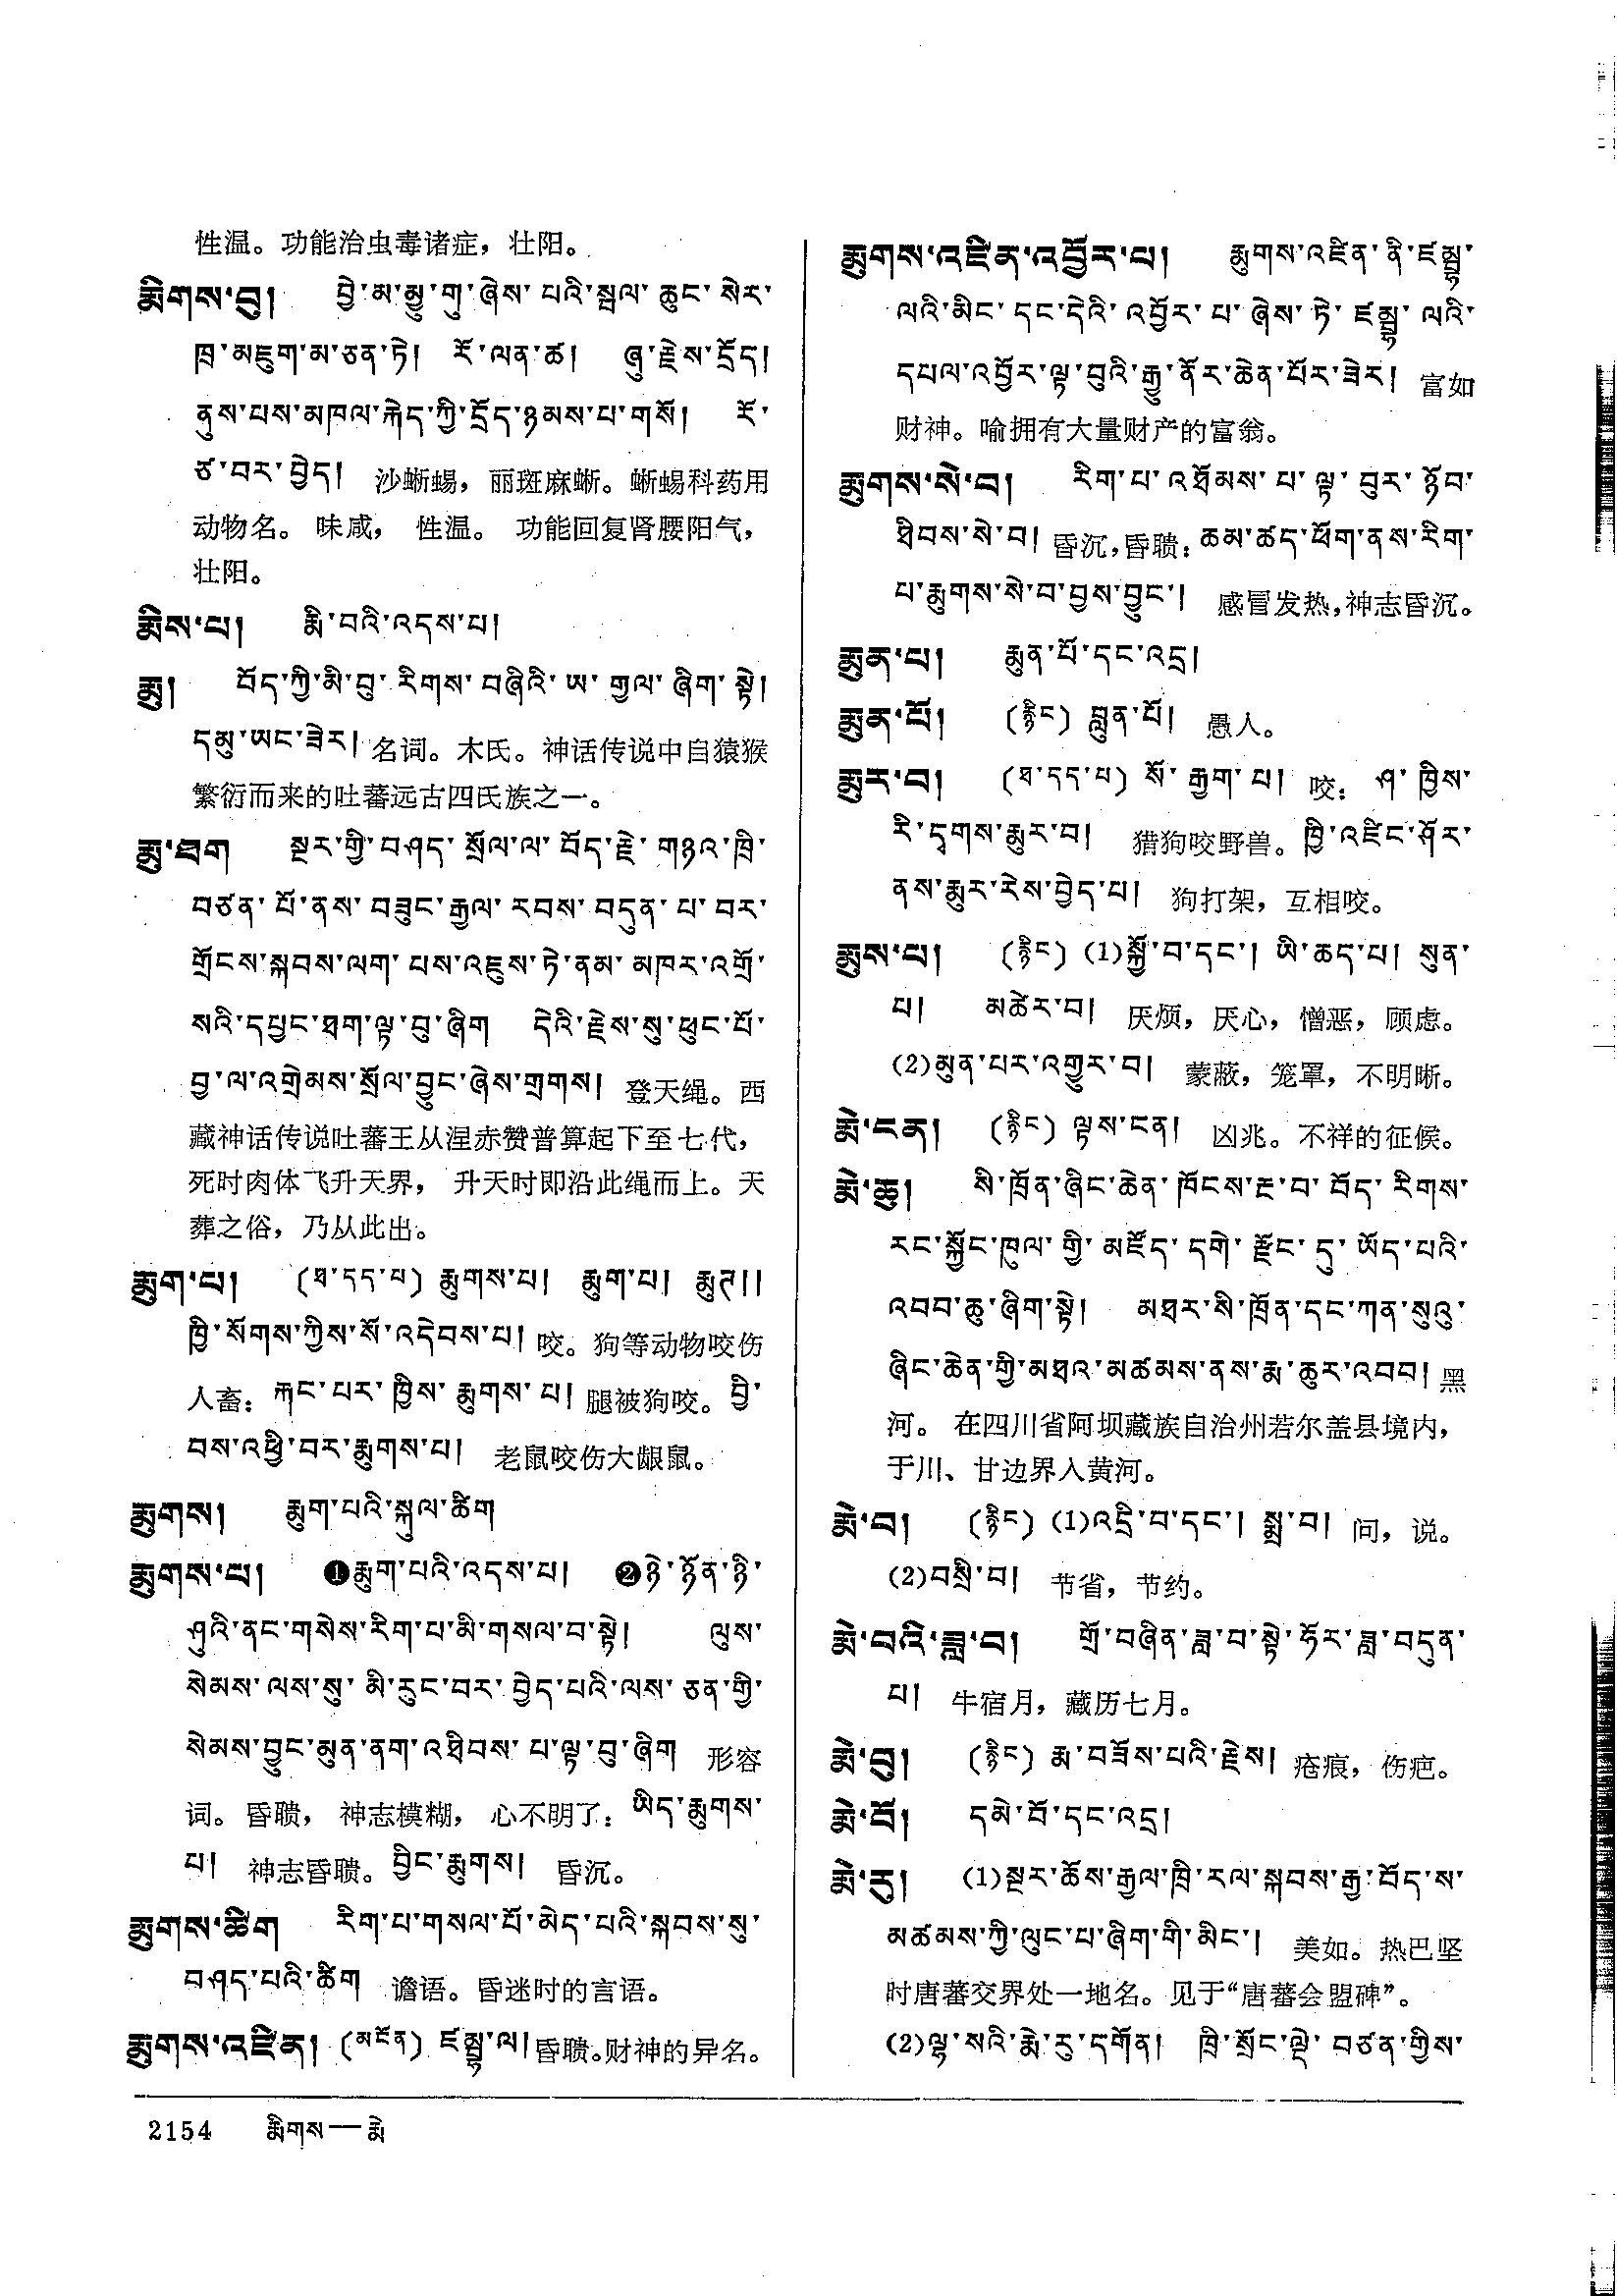 性温。功能治虫毒诸症，壮阳。
རྨིགས་བུ། བྱེ་མ་མྱུ་གུ་ཞེས་པའི་སྦལ་ཆུང་སེར་
ཁྲ་མཇུག་མ་ཅན་ཏེ། རོ་ལན་ཚ། ཞུ་རྗེས་དྲོད།
ནུས་པས་མཁལ་རྐེད་ཀྱི་དྲོད་ཉམས་པ་གསོ། རོ་
ཙ་བར་བྱེད། 沙蜥蜴，丽斑麻蜥。蜥蜴科药用
动物名。味咸，性温。功能回复肾腰阳气，
壮阳。
རྨིས་པ། རྨི་བའི་འདས་པ།
རྨུ། བོད་ཀྱི་མི་བུ་རིགས་བཞིའི་ཨ་གྱལ་ཞིག་སྟེ།
དམུ་ཡང་ཟེར། 名词。木氏。神话传说中自猿猴
繁衍而来的吐蕃远古四氏族之一。
རྨུ་ཐག སྔར་གྱི་བཤད་སྲོལ་ལ་བོད་རྗེ་གཉའ་ཁྲི་
བཙན་པོ་ནས་བཟུང་རྒྱལ་རབས་བདུན་པ་བར་
གྲོངས་སྐབས་ལག་པས་འཇུས་ཏེ་ནམ་མཁར་འགྲོ་
སའི་དཔྱང་ཐག་ལྟ་བུ་ཞིག དེའི་རྗེས་སུ་ཕུང་པོ་
བྱ་ལ་འགྲེམས་སྲོལ་བྱུང་ཞེས་གྲགས། 登天绳。西
藏神话传说吐蕃王从涅赤赞普算起下至七代，
死时肉体飞升天界，升天时即沿此绳而上。天
葬之俗，乃从此出。
རྨུག་པ། (ཐ་དད་པ) རྨུགས་པ། རྨུག་པ། རྨུཊ།།
ཁྱི་སོགས་ཀྱིས་སོ་འདེབས་པ། 咬。狗等动物咬伤
人畜：རྐང་པར་ཁྱིས་རྨུགས་པ། 腿被狗咬。བྱི་
བས་འཕྱི་བར་རྨུགས་པ། 老鼠咬伤大龈鼠。
རྨུགས། རྨུག་པའི་སྐུལ་ཚིག
རྨུགས་པ། ❶རྨུག་པའི་འདས་པ། ❷ཉེ་ཉོན་ཉི་
ཤུའི་ནང་གསེས་རིག་པ་མི་གསལ་བ་སྟེ། ལུས་
སེམས་ལས་སུ་མི་རུང་བར་བྱེད་པའི་ལས་ཅན་གྱི་
སེམས་བྱུང་མུན་ནག་འཐིབས་པ་ལྟ་བུ་ཞིག 形容
词。昏聩，神志模糊，心不明了：ཡིད་རྨུགས་
པ། 神志昏聩。བྱིང་རྨུགས། 昏沉。
རྨུགས་ཚིག རིག་པ་གསལ་པོ་མེད་པའི་སྐབས་སུ་
བཤད་པའི་ཚིག 谵语。昏迷时的言语。
རྨུགས་འཛིན། (མངོན) ཛམྦྷ་ལ། 昏聩。财神的异名。
རྨུགས་འཛིན་འབྱོར་པ། རྨུགས་འཛིན་ནི་ཛམྦྷ་
ལའི་མིང་དང་དེའི་འབྱོར་པ་ཞེས་ཏེ་ཛམྦྷ་ལའི་
དཔལ་འབྱོར་ལྟ་བུའི་རྒྱུ་ནོར་ཆེན་པོར་ཟེར། 富如
财神。喻拥有大量财产的富翁。
རྨུགས་སེ་བ། རིག་པ་འཐོམས་པ་ལྟ་བུར་ཉོབ་
ཐིབས་སེ་བ། 昏沉，昏聩：ཆམ་ཚད་ཕོག་ནས་རིག་
པ་རྨུགས་སེ་བ་བྱས་བྱུང་། 感冒发热，神志昏沉。
རྨུན་པ། རྨུན་པོ་དང་འདྲ།
རྨུན་པོ། (རྙིང) བླུན་པོ། 愚人。
རྨུར་བ། (ཐ་དད་པ) སོ་རྒྱག་པ། 咬：ཤ་ཁྱིས་
རི་དྭགས་རྨུར་བ། 猎狗咬野兽。ཁྱི་འཛིང་ཤོར་
ནས་རྨུར་རེས་བྱེད་པ། 狗打架，互相咬。
རྨུས་པ། (རྙིང) (1)སྐྱོ་བ་དང་། ཡི་ཆད་པ། སུན་
པ། མཚེར་བ། 厌烦，厌心，憎恶，顾虑。
(2)མུན་པར་འགྱུར་བ། 蒙蔽，笼罩，不明晰。
རྨེ་ངན། (རྙིང) ལྟས་ངན། 凶兆。不祥的征候。
རྨེ་ཆུ། སི་ཁྲོན་ཞིང་ཆེན་ཁོངས་རྔ་བ་བོད་རིགས་
རང་སྐྱོང་ཁུལ་གྱི་མཛོད་དགེ་རྫོང་དུ་ཡོད་པའི་
འབབ་ཆུ་ཞིག་སྟེ། མཐར་སི་ཁྲོན་དང་ཀན་སུའུ་
ཞིང་ཆེན་གྱི་མཐའ་མཚམས་ནས་རྨ་ཆུར་འབབ། 黑
河。在四川省阿坝藏族自治州若尔盖县境内，
于川、甘边界入黄河。
རྨེ་བ། (རྙིང) (1)འདྲི་བ་དང་། སྨྲ་བ། 问，说。
(2)བསྲི་བ། 节省，节约。
རྨེ་བའི་ཟླ་བ། གྲོ་བཞིན་ཟླ་བ་སྟེ་ཧོར་ཟླ་བདུན་
པ། 牛宿月，藏历七月。
རྨེ་བུ། (རྙིང) རྨ་བཟོས་པའི་རྗེས། 疮痕，伤疤。
རྨེ་བོ། དམེ་བོ་དང་འདྲ།
རྨེ་རུ། (1)སྔར་ཆོས་རྒྱལ་ཁྲི་རལ་སྐབས་རྒྱ་བོད་ས་
མཚམས་ཀྱི་ལུང་པ་ཞིག་གི་མིང་། 美如。热巴坚
时唐蕃交界处一地名。见于“唐蕃会盟碑”。
(2)ལྷ་སའི་རྨེ་རུ་དགོན། ཁྲི་སྲོང་ལྡེ་བཙན་གྱིས་
2154 རྨིགས — རྨེ